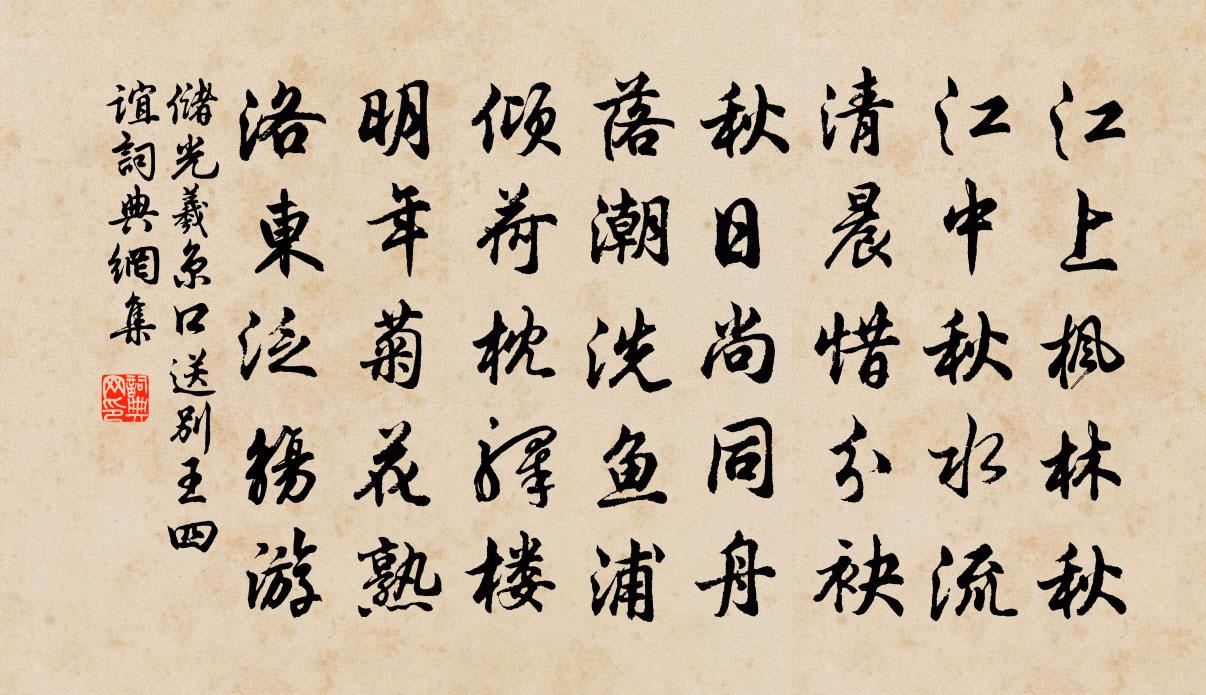 江上楓林秋
江中秋水流
清晨惜分袂
秋日尚同舟
落潮洗鱼浦
倾荷枕驛楼
明年菊花熟
洛東泛觴游
儲光羲京口送别王四
誼詞典網集
詞典网印